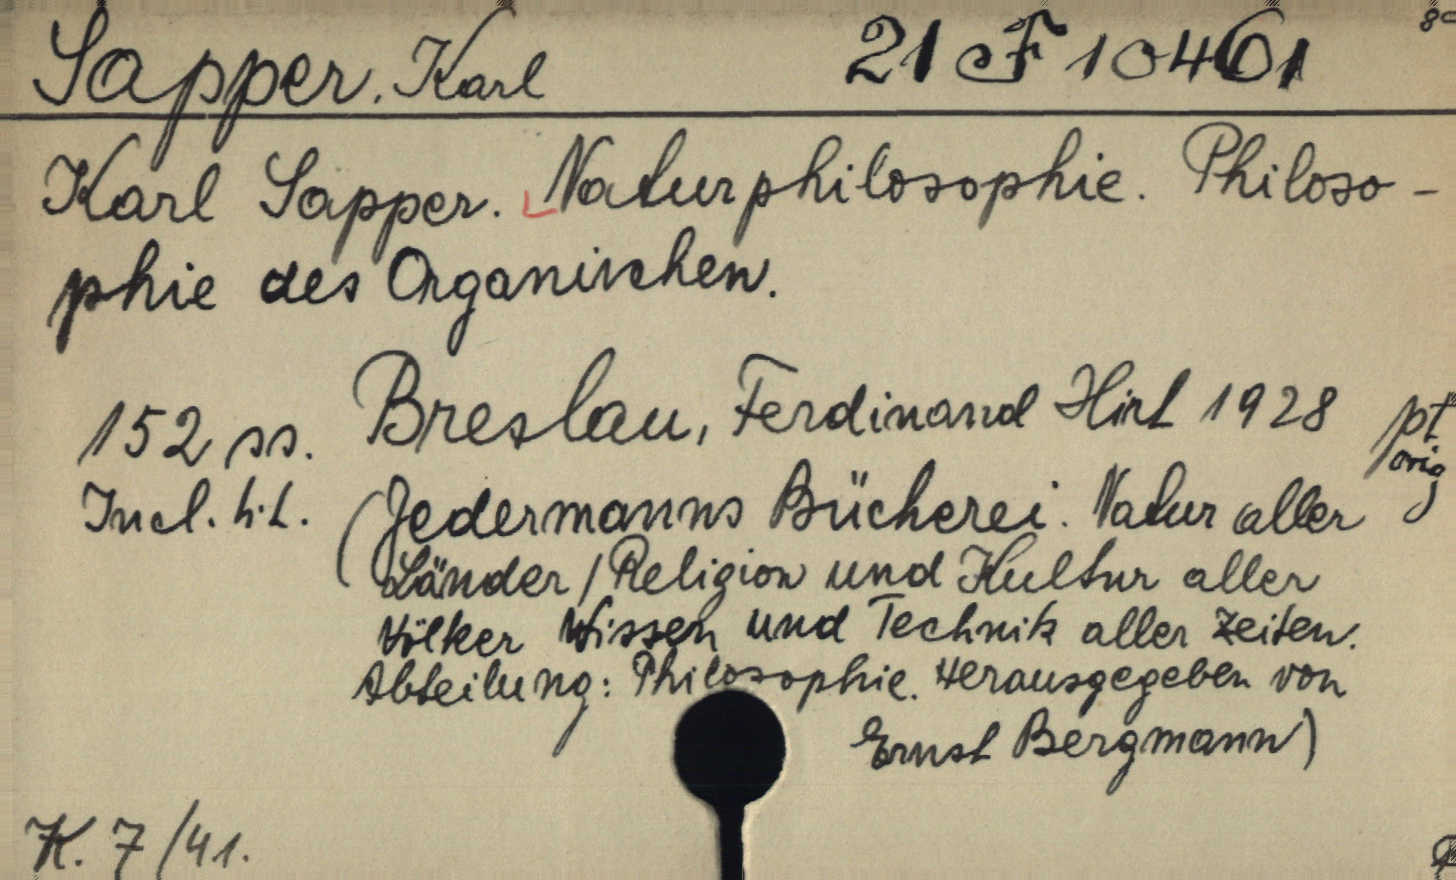 Sapper, Karl 21 F 10461 8°
Karl Sapper. Naturphilosophie. Philoso-
phie des Organischen.
Breslau, Ferdinand Hirt 1928
152 ss. pt
orig
Incl. t.t. (Jedermanns Bücherei. Natur aller
Länder / Religion und Kultur aller
Völker Wissen und Technik aller Zeiten.
Abteilung: Philosophie. Herausgegeben von
Ernst Bergmann)
K. 7/41.